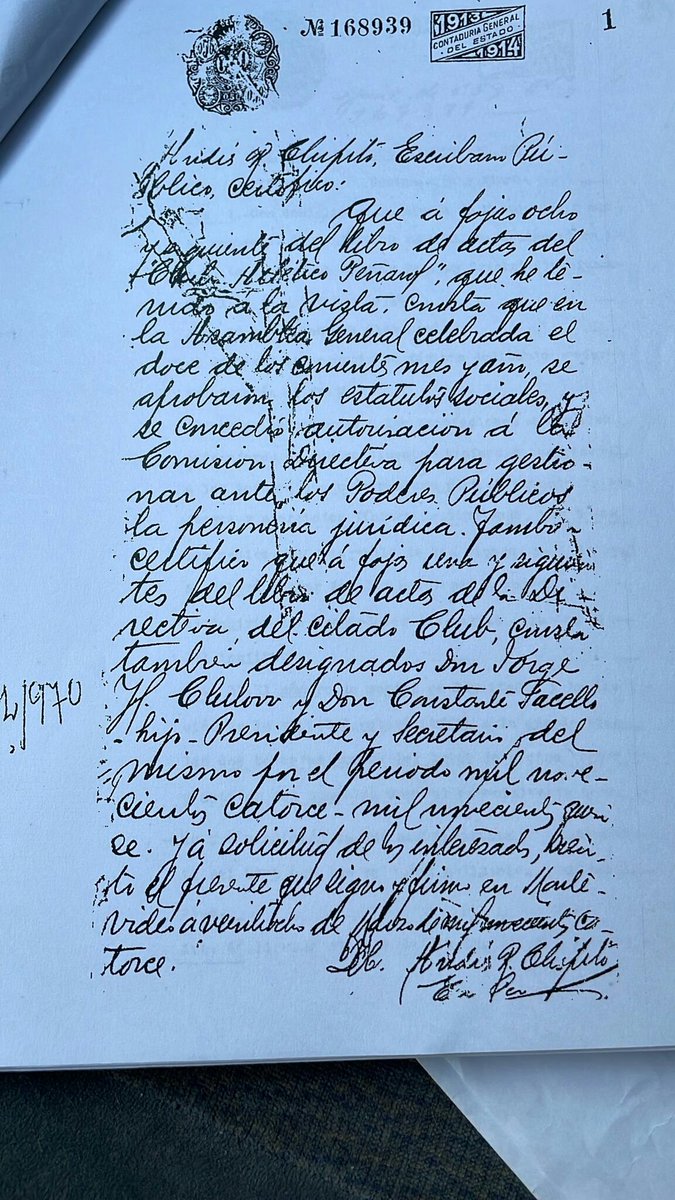 № 168939
1913
CONTADURIA GENERAL
DEL ESTADO
1914
1
P. Chifitó, Escribano Pú-
blico, certifico:
Que á fojas ocho
y siguiente del libro de actas del
"Club Atlético Peñarol", que he te-
nido á la vista, consta que en
la Asamblea General celebrada el
doce de los corrientes mes y año, se
aprobaron los estatutos sociales, y
se concedió autorización á la
Comisión Directiva para gestio-
nar ante los Poderes Públicos
la personería jurídica. Tambi-
certifico que á fojas una y siguien
tes del libro de actas de la Di-
rectiva, del citado Club, consta
también designados Don Jorge
H. Clulow y Don Constante Facello
-hijo- Presidente y Secretario, del
mismo por el periodo mil nove-
cientos catorce- mil novecientos quin
ce. Y á solicitud de los interesados,
el presente que signo y firmo en Monte-
video á veintiocho de Marzo de mil novecientos ca-
torce.
P. Chifitó
/970